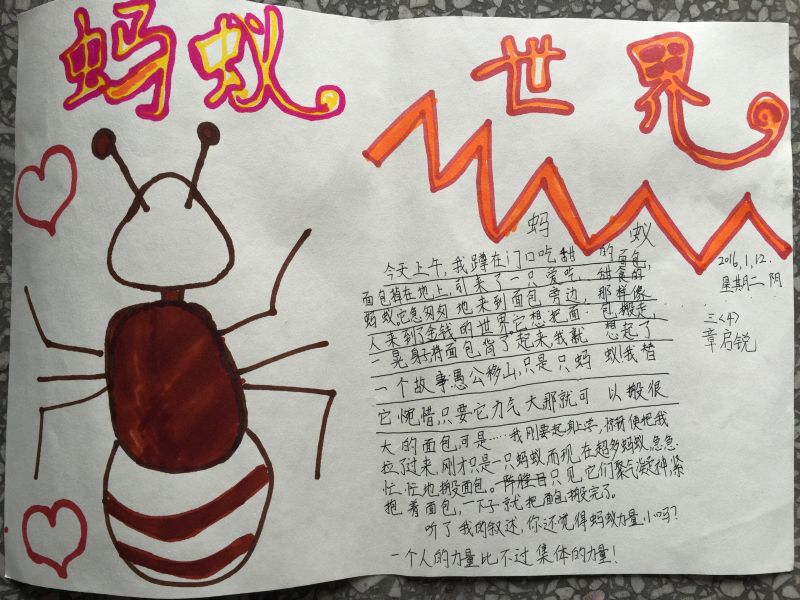 蚂蚁 世界
蚂 蚁
2016,1,12.
星期二 阴
三<4>
章启锐
今天上午,我蹲在门口吃甜 的面包,
面包掉在地上,引来了一只爱吃 甜食的
蚂蚁。它急匆匆地来到面包旁边,那样像
人来到了金钱的世界。它想把面 包搬走,
一晃身子将面包背了起来我就 想起了
一个故事愚公移山,只是只蚂 蚁!我替
它惋惜,只要它力气大那就可 以搬很
大的面包,可是……我刚要起身上去,
拉了过来,刚才只是一只蚂蚁而现在超多蚂蚁急急
忙忙地搬面包。只见它们聚气紧
抱着面包,一下子就把面包搬完了。
听了我的叙述,你还觉得蚂蚁力量小吗?
一个人的力量比不过集体的力量!